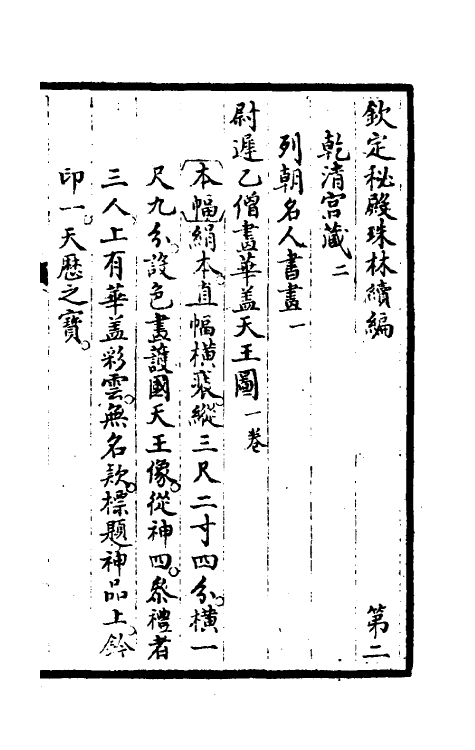 欽定秘殿珠林續編　第二
乾清宮藏二
列朝名人書畫一
尉遲乙僧畫華盖天王圖一卷
本幅絹本。直幅橫裱。縱三尺二寸四分。橫一
尺九分。設色畫護國天王像。從神四。叅禮者
三人。上有華盖彩雲。無名款。標題神品上。鈐
印一。天歷之寶。